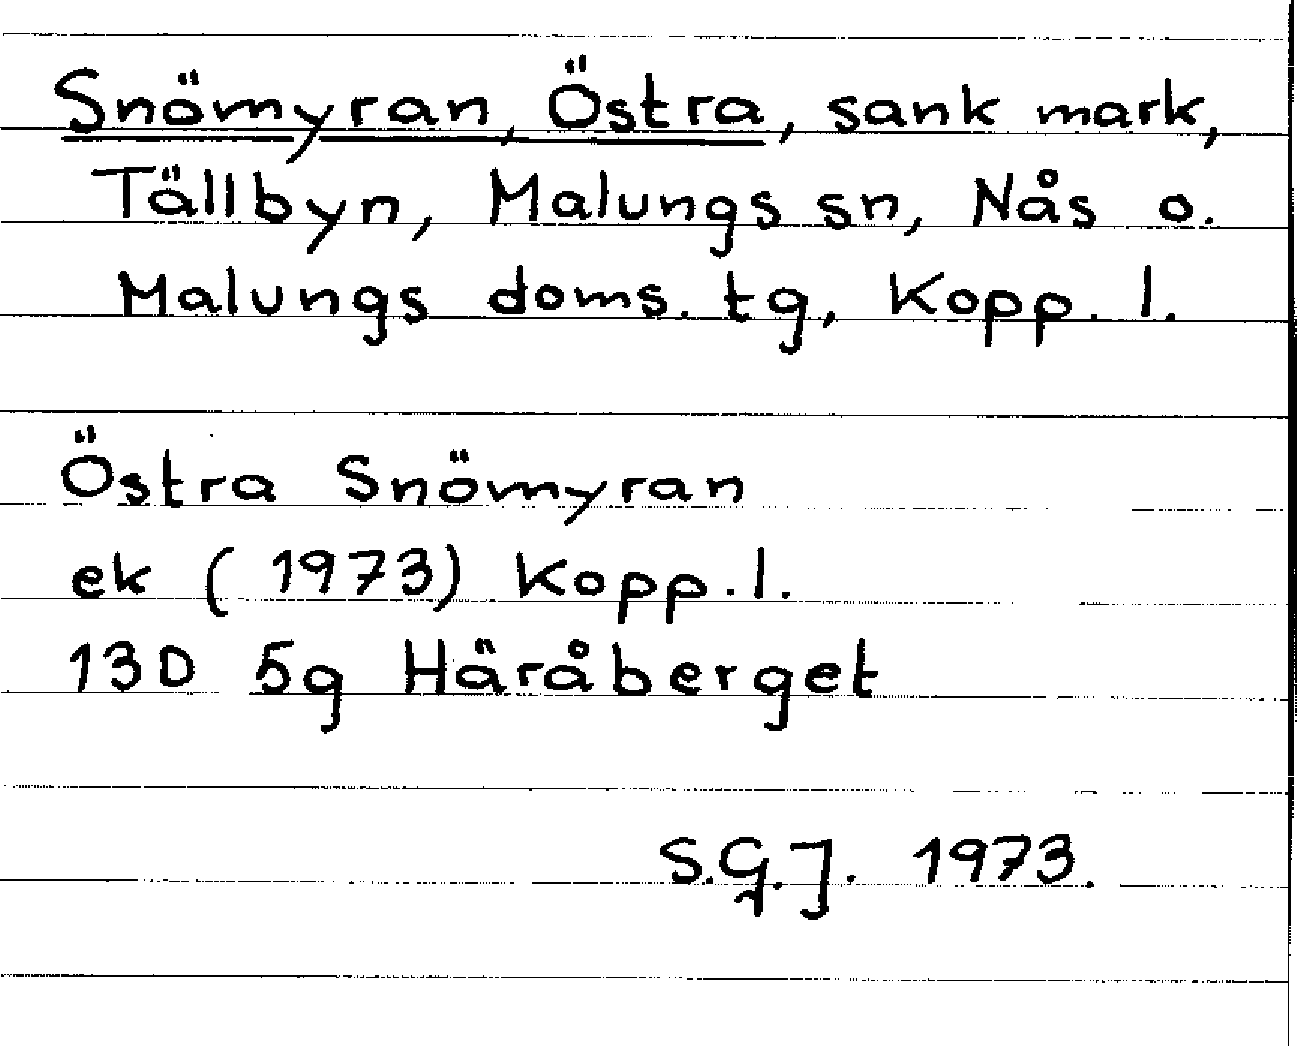 Snömyran, Östra, sank mark,
Tällbyn, Malungs sn, Nås o.
Malungs doms. tg, Kopp. l.
Östra Snömyran
ek (1973) Kopp. l.
13D 5g Häråberget
S.G.J. 1973.